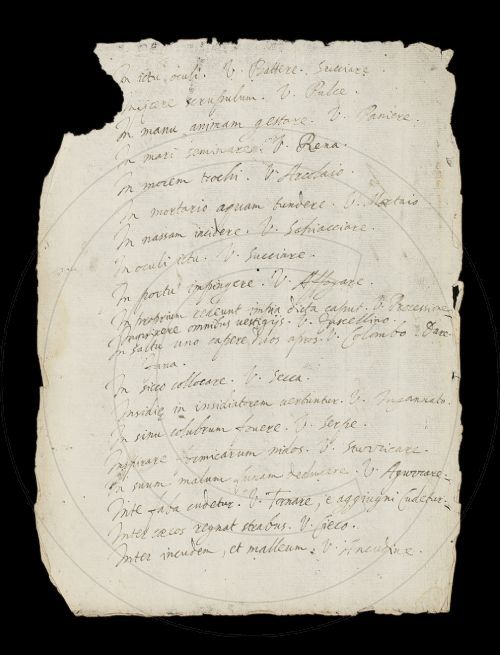 In ictu oculi. V. Battere. Succiare.
Iniicere scrupulum. V. Pulce.
In manu animam gestare. V. Paniere.
In mari seminare. V. Rena.
In morem trochi. V. Arcolaio.
In mortario aquam tundere. V. Mortaio
In nassam incidere. V. Schiacciare.
In oculi ictu. V. Succiare.
In portu impingere. V. Affogare.
In proprium redeunt impia dicta caput. V. Processione
omnibus vestigijs. V. Fuscellino.
In saltu uno capere duos apros. V. Colombo. Dare
fava.
In sicco collocare. V. Secca.
Insidie in insidiatorem vertuntur. V. Ingannato.
In sinu colubrum fovere. V. Serpe.
Inspirare formicarum nidos. V. Stuzzicare.
In suum malum lunam deducere. V. Aguzzare.
Inte faba cudetur. V. Tornare, e aggiugni cudetur.
Inter cæcos regnat strabus. V. Cieco.
Inter incudem, et malleum. V. Ancudine.